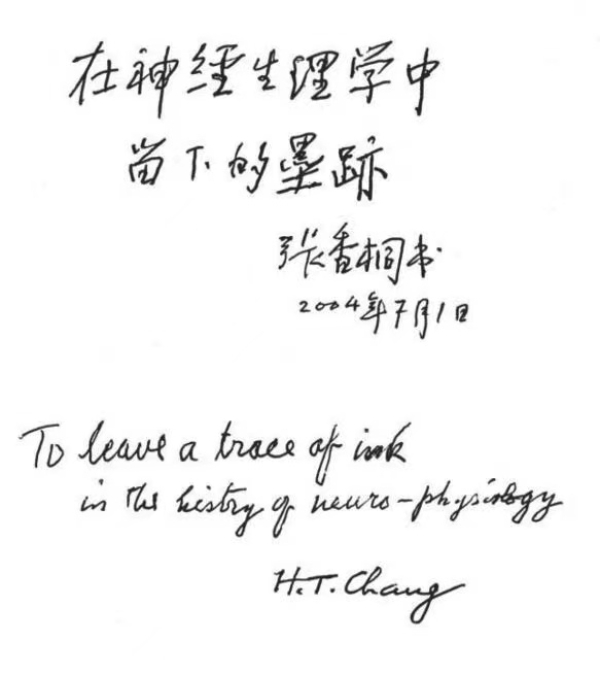 在神經生理学中
留下的墨跡
张香桐书
2004年7月1日
To leave a trace of ink
in the histry of neuro-physiology
H.T. Chang